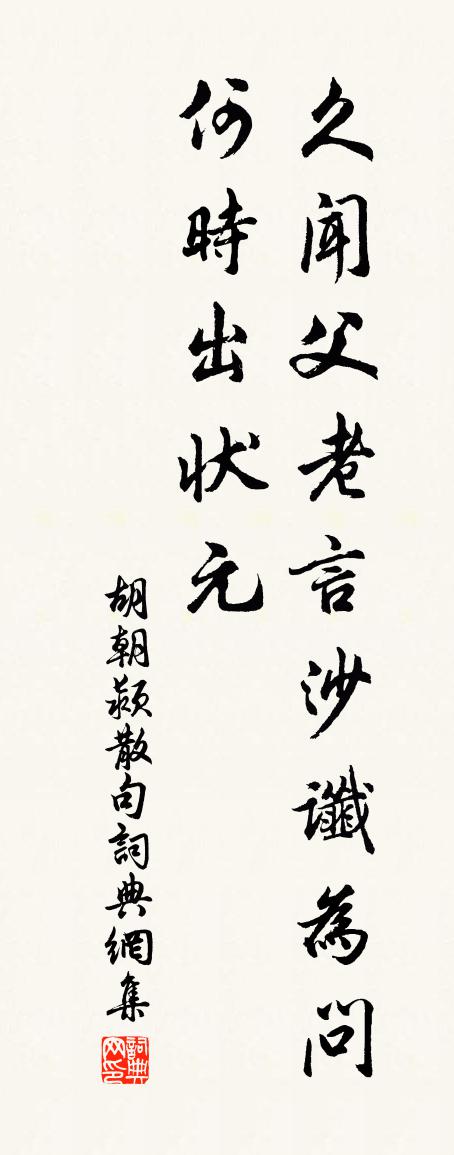 久聞父老言沙讖為問
何時出狀元
胡朝穎散句詞典網集
詞典网印